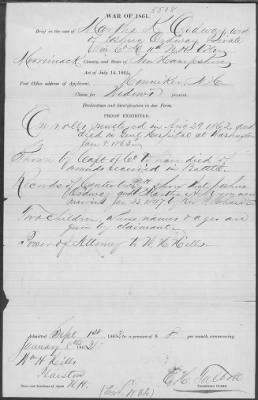 5518
WAR OF 1861.
Brief in the case of Martha K. Ordway, wid
of Joshua Ordway Private
Co. E 11th N.H. Vols
Merrimack County, and State of New Hampshire
Act of July 14, 1862.
Post Office address of Applicant, Henniker N.H.
Claim for Widow's pension.
Declaration and Identification in due Form.
PROOF EXHIBITED.
Enrolled Aug 29 1862, and
died in Hospital at Washington
Jan 8 1863
Proven by Capt of Co. died of
wounds received in Battle
Records of show that Joshua
Ordway and Martha K. were
married Jan 25 1847 by Rev.
Two children, whose names & ages are
given by claimant.
Power of Attorney to W. H. Hills
Admitted Sept 1st 1863 to a pension of $8 per month commencing
January 8th 1863
Wm H Hills
Plaistow
N.H.
Name and Residence of Agent.
E. C. Talbot
Examining Clerk.